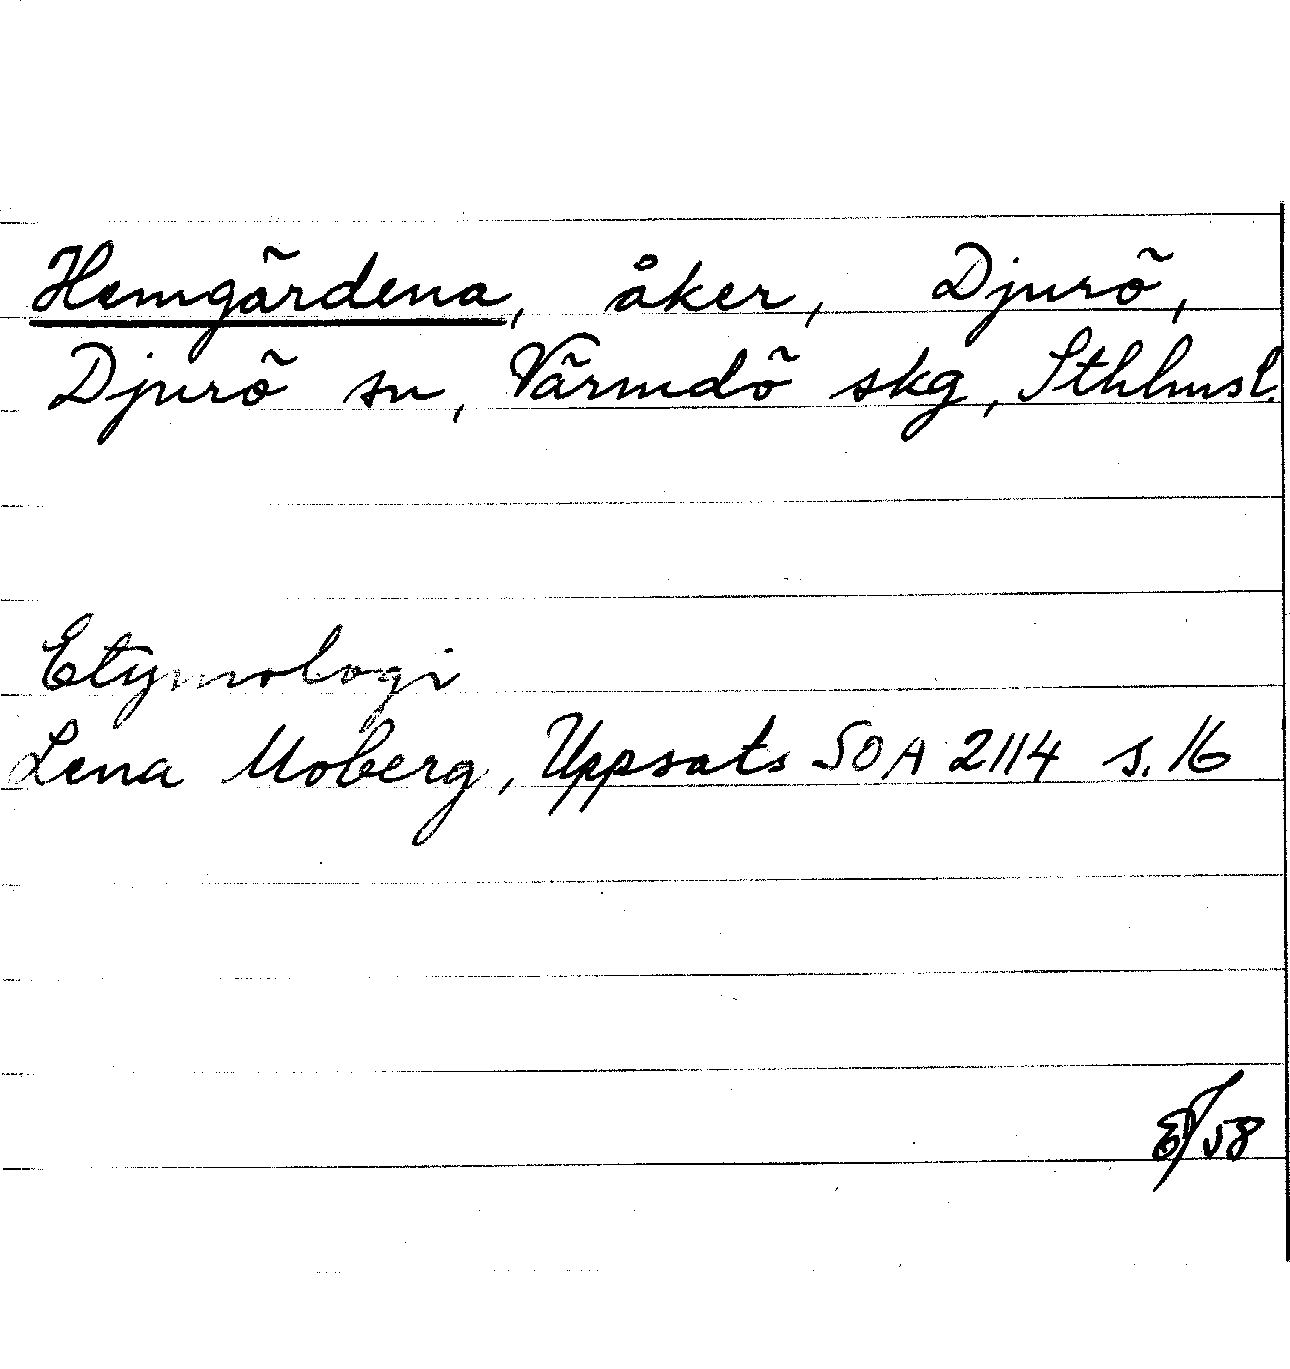 Hemgärdena, åker, Djurö,
Djurö sn, Värmdö skg, Sthlmsl.
Etymologi
Lena Moberg, Uppsats SOA 2114 s. 16
58